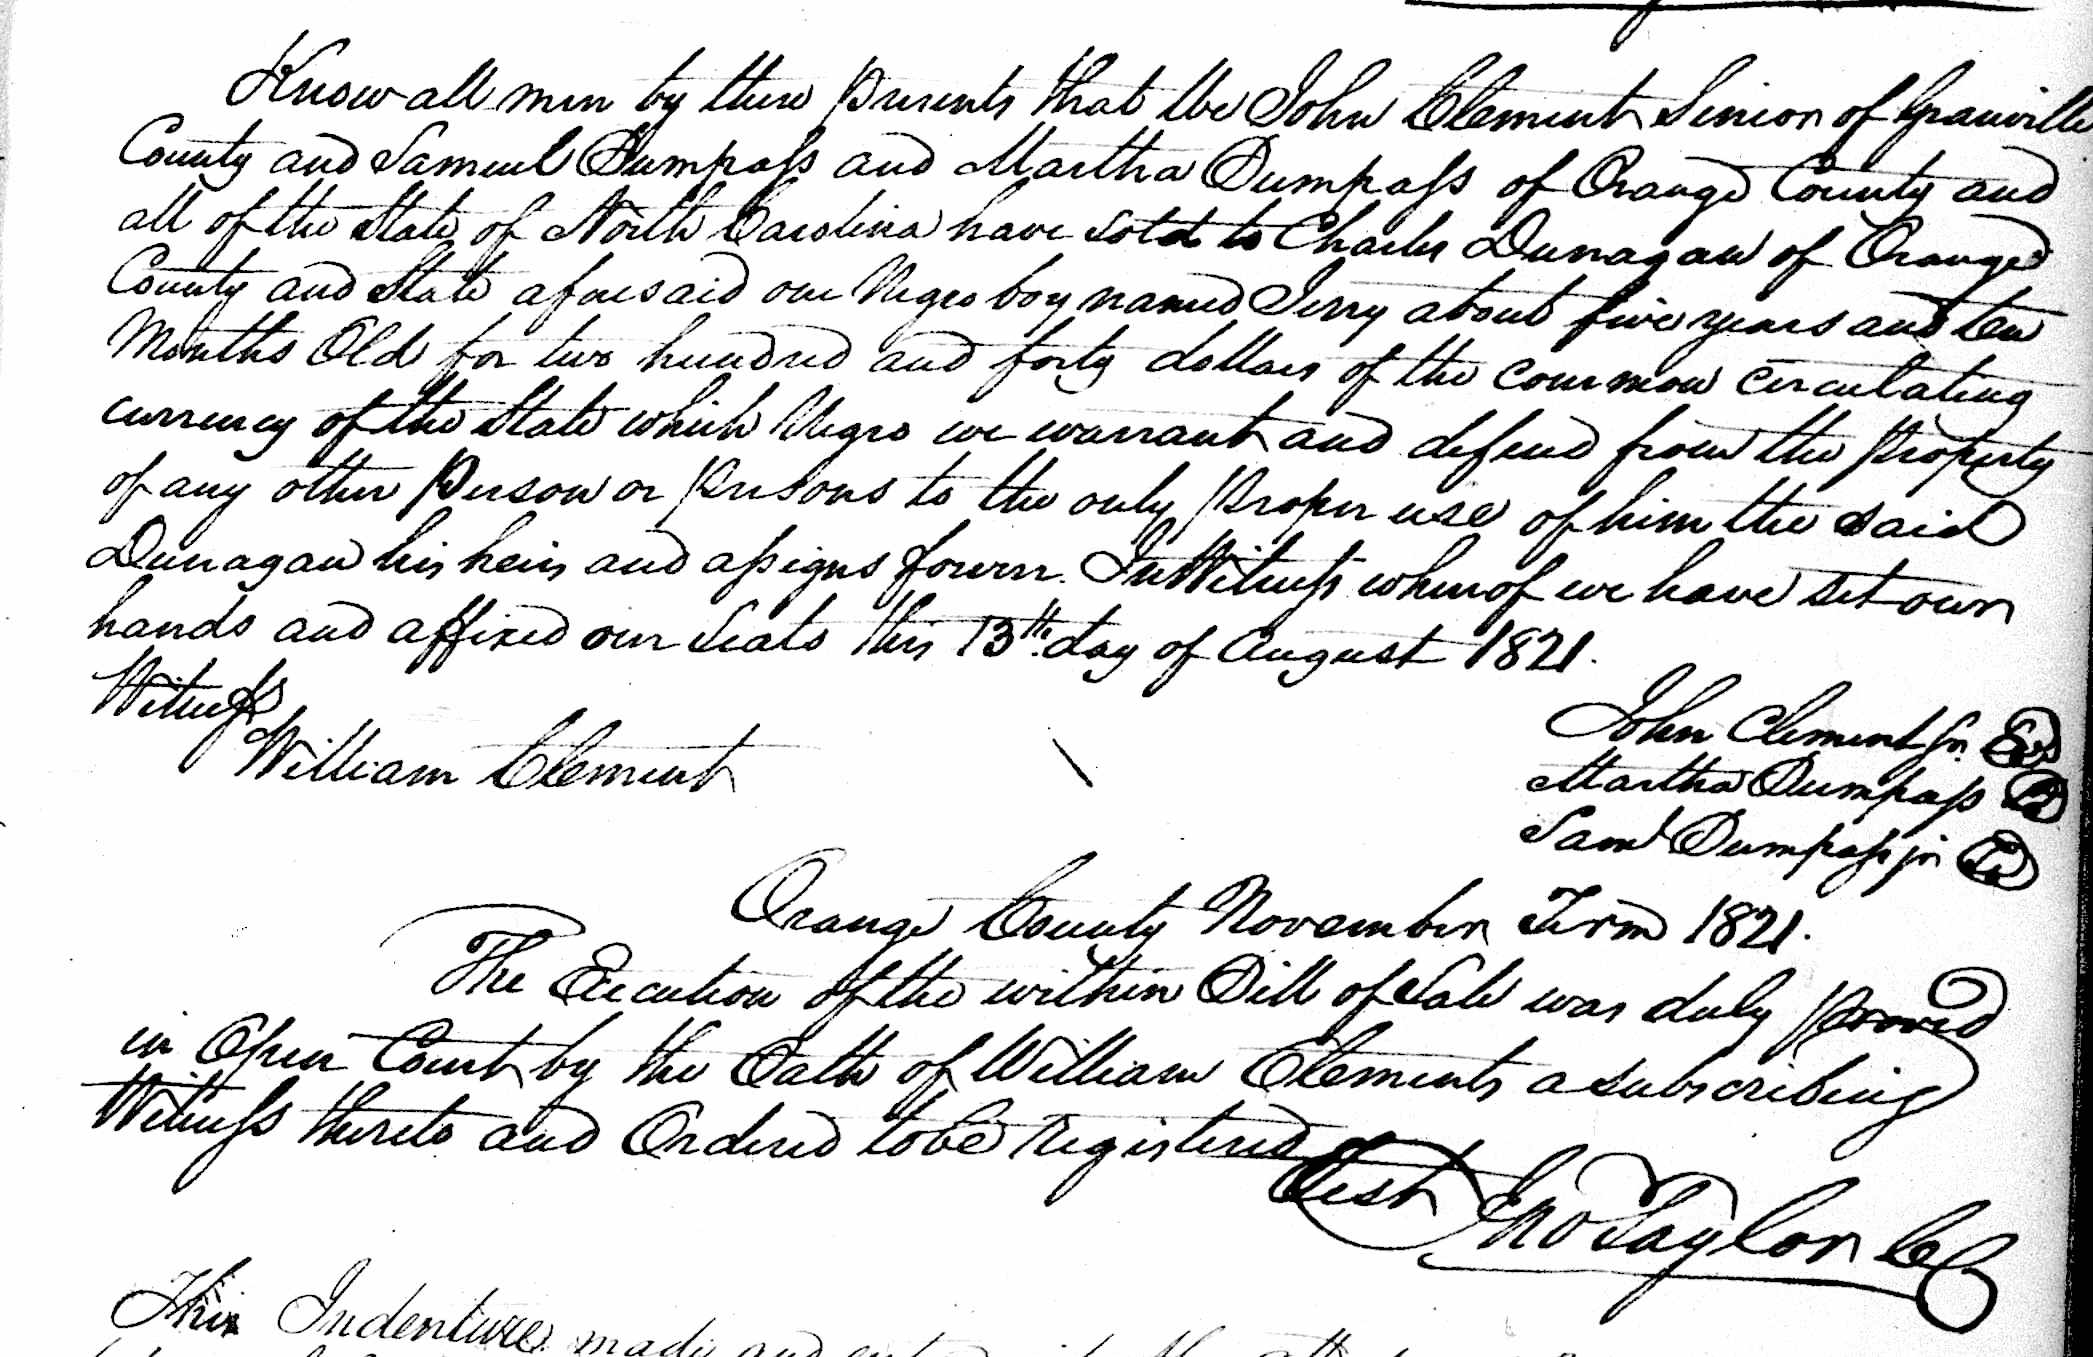 Know all men by these Presents that We John Clement Senior of Granville
County and Samuel Bumpass and Martha Bumpass of Orange County and
all of the State of North Carolina have sold to Charles Dunagan of Orange
County and State aforesaid one Negro boy named Jerry about five years and ten
Months Old for two hundred and forty dollars of the common circulating
currency of the State which Negro we warrant and defend from the Property
of any other Person or Persons to the only Proper use of him the said
Dunagan his heirs and assigns forever. In Witness whereof we have set our
hands and affixed our Seals this 13th. day of August 1821.
Witness
William Clement
John Clement Sr.
Martha Bumpass
Saml Bumpass jr
Orange County November Term 1821.
The Execution of the within Bill of Sale was duly Proved
in Open Court by the Oath of William Clements a subscribing
Witness thereto and Ordered to be registered
Test Jno Taylor CC
This Indenture made and